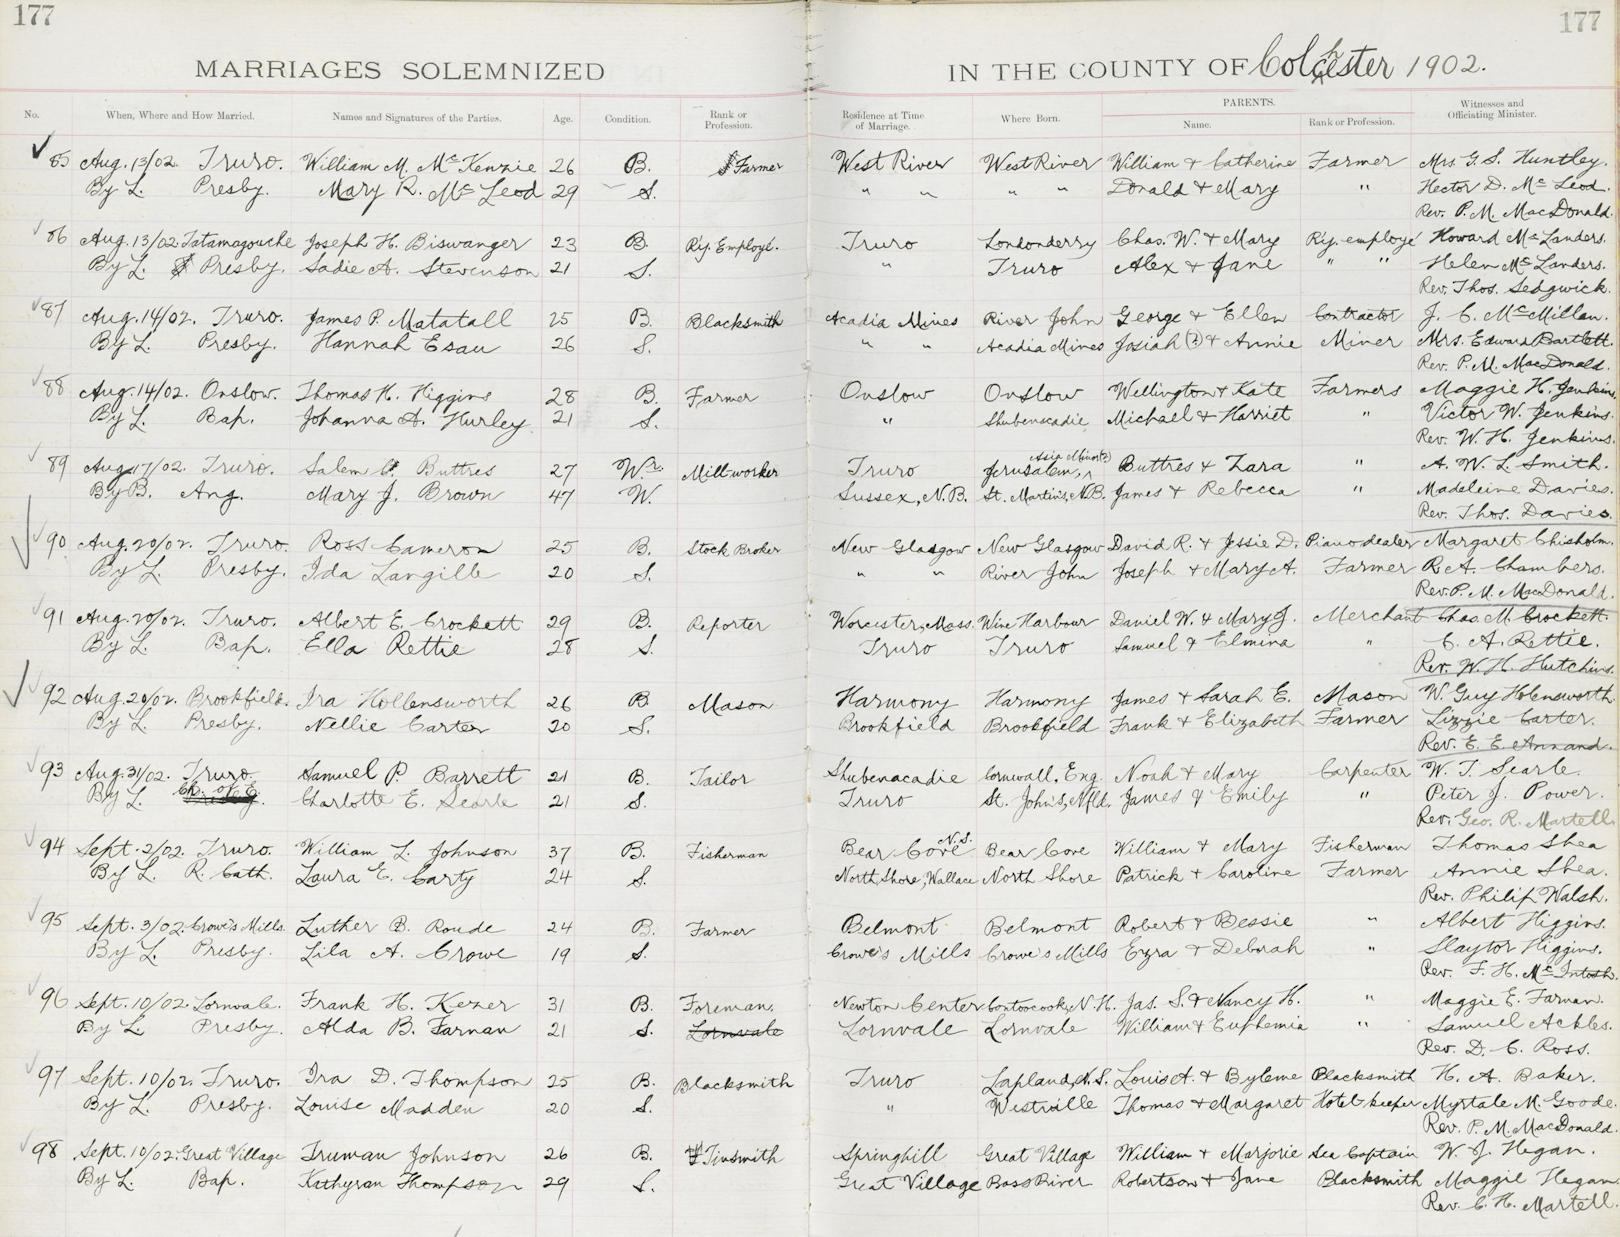 177
177
MARRIAGES SOLEMNIZED IN THE COUNTY OF Colchester 1902.
No. When, Where and How Married. Names and Signatures of the Parties. Age. Condition. Rank or Profession. Residence at Time of Marriage. Where Born. PARENTS. Name. Rank or Profession. Witnesses and Officiating Minister.
85 Aug. 13/02. Truro. William M. McKenzie 26 B. Farmer West River West River William & Catherine Farmer Mrs. G. S. Huntley.
By L. Presby. Mary R. McLeod 29 S. " " " " Donald & Mary " Hector D. McLeod.
Rev. P. M. MacDonald.
86 Aug. 13/02. Tatamagouche Joseph H. Biswanger 23 B. Ry. Employé. Truro Londonderry Chas. W. & Mary Ry. employé Howard McLanders.
By L. Presby. Sadie A. Stevenson 21 S. " Truro Alex & Jane " " Helen McLanders.
Rev. Thos. Sedgwick.
87 Aug. 14/02. Truro. James P. Matatall 25 B. Blacksmith Acadia Mines River John George & Ellen Contractor J. C. McMillan.
By L. Presby. Hannah Esau 26 S. " " Acadia Mines Josiah (?) & Annie Miner Mrs. Edward Bartlett.
Rev. P. M. MacDonald.
88 Aug. 14/02. Onslow. Thomas H. Higgins 28 B. Farmer Onslow Onslow Wellington & Kate Farmers Maggie H. Jenkins.
By L. Bap. Johanna A. Hurley 21 S. " Shubenacadie Michael & Harriet " Victor W. Jenkins.
Rev. W. H. Jenkins.
89 Aug. 17/02. Truro. Salem Buttres 27 Wr. Mill worker Truro Jerusalem, Asia Minor(?) Buttres & Zara " A. W. L. Smith.
By B. Ang. Mary J. Brown 47 W. Sussex, N.B. St. Martins, N.B. James & Rebecca " Madeleine Davies.
Rev. Thos. Davies.
90 Aug. 20/02. Truro. Ross Cameron 25 B. Stock Broker New Glasgow New Glasgow David R. & Jessie D. Piano dealer Margaret Chisholm.
By L. Presby. Ida Langille 20 S. " " River John Joseph & Mary A. Farmer R. A. Chambers.
Rev. P. M. MacDonald.
91 Aug. 20/02. Truro. Albert E. Crockett 29 B. Reporter Worcester, Mass. Wine Harbour Daniel W. & Mary J. Merchant Chas. M. Crockett.
By L. Bap. Ella Rettie 28 S. Truro Truro Samuel & Elmina " C. A. Rettie.
Rev. W. H. Hutchins.
92 Aug. 20/02. Brookfield. Ira Hollensworth 26 B. Mason Harmony Harmony James & Sarah E. Mason W. Guy Holensworth.
By L. Presby. Nellie Carter 20 S. Brookfield Brookfield Frank & Elizabeth Farmer Lizzie Carter.
Rev. E. E. Annand.
93 Aug. 31/02. Truro. Samuel P. Barrett 21 B. Tailor Shubenacadie Cornwall, Eng. Noah & Mary Carpenter W. T. Searle.
By L. Ch. of E. Charlotte E. Searle 21 S. Truro St. John's, Nfld. James & Emily " Peter J. Power.
Rev. Geo. R. Martell.
94 Sept. 2/02. Truro. William L. Johnson 37 B. Fisherman Bear Cove N.S. Bear Cove William & Mary Fisherman Thomas Shea
By L. R. Cath. Laura E. Carty 24 S. North Shore, Wallace North Shore Patrick & Caroline Farmer Annie Shea.
Rev. Philip Walsh.
95 Sept. 3/02. Crowe's Mills. Luther B. Roude 24 B. Farmer Belmont Belmont Robert & Bessie " Albert Higgins.
By L. Presby. Lila A. Crowe 19 S. Crowe's Mills Crowe's Mills Ezra & Deborah " Slaytor Higgins.
Rev. F. H. McIntosh.
96 Sept. 10/02. Lornvale. Frank H. Kezer 31 B. Foreman. Newton Center Contoocook, N.H. Jas. S. & Nancy H. " Maggie E. Farnan.
By L. Presby. Alda B. Farnan 21 S. Lornvale Lornvale Lornvale William & Euphemia " Samuel Ackles.
Rev. D. C. Ross.
97 Sept. 10/02. Truro. Ira D. Thompson 25 B. Blacksmith Truro Lapland, N.S. Louis A. & Byleme Blacksmith H. A. Baker.
By L. Presby. Louise Madden 20 S. " Westville Thomas & Margaret Hotel keeper Myrtale M. Goode.
Rev. P. M. MacDonald.
98 Sept. 10/02. Great Village Truman Johnson 26 B. Tinsmith Springhill Great Village William & Marjorie Sea Captain W. J. Hegan.
By L. Bap. Kathyran Thompson 29 S. Great Village Bass River Robertson & Jane Blacksmith Maggie Hegan
Rev. C. H. Martell.